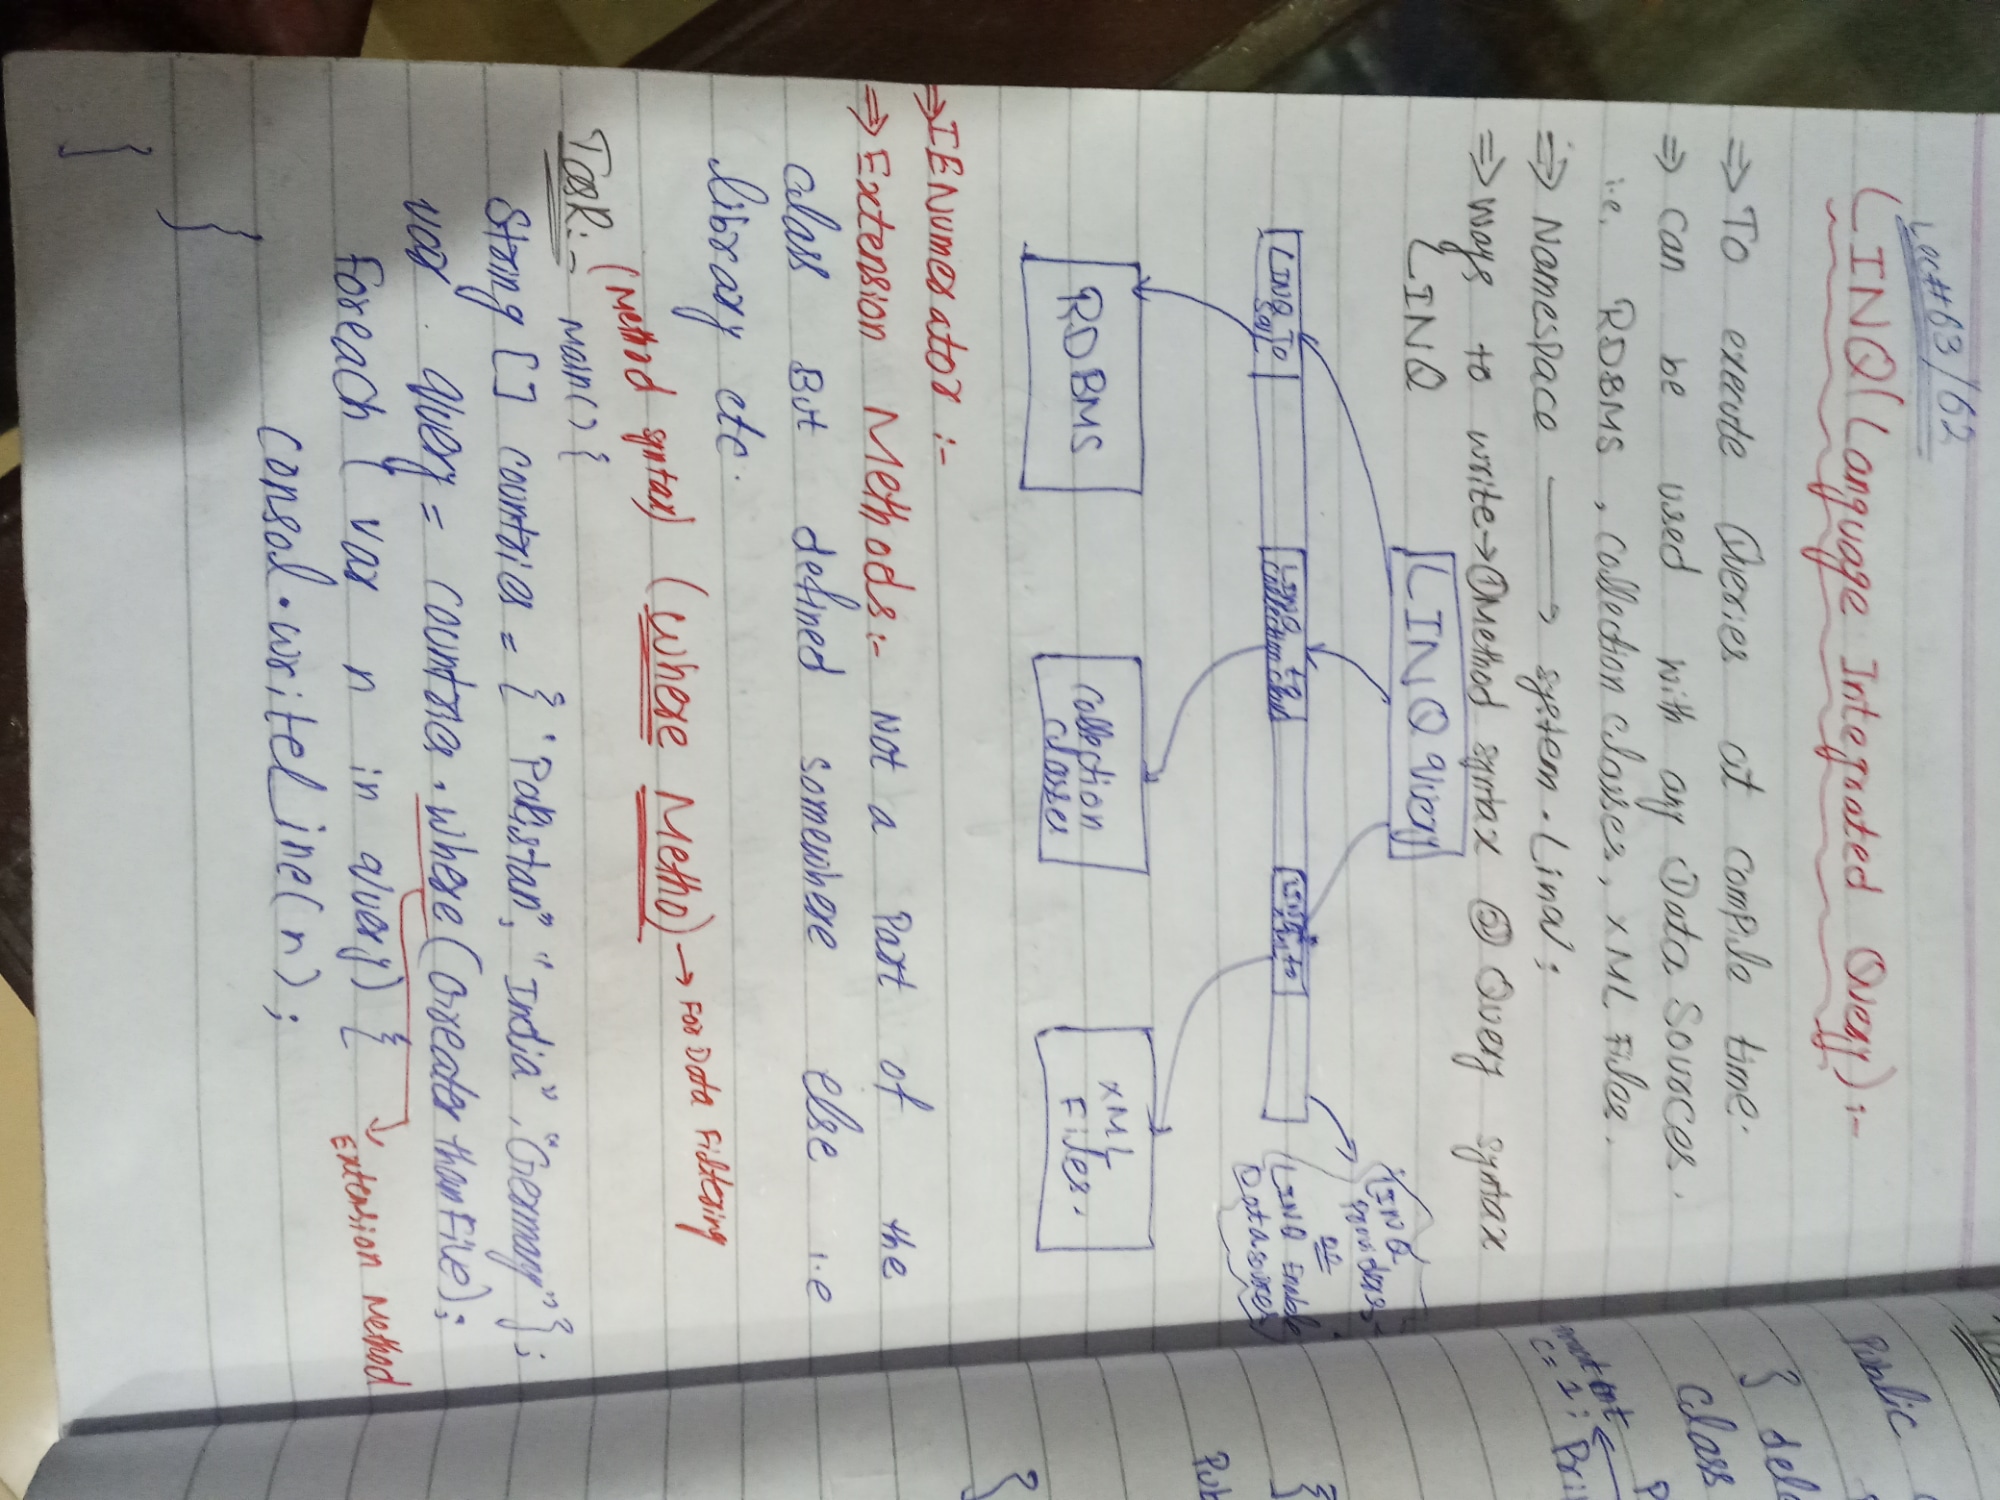 Lec#63/62
LINQ(Language Integrated Query):-
⇒ To execute Queries at compile time.
⇒ can be used with any Data Sources.
i.e. RDBMS, collection classes, XML Files.
⇒ Namespace → system.Linq;
⇒ ways to write → ① Method syntax ② Query syntax
LINQ
LINQ query
LINQ Providers
or
LINQ Enable
Datasources
LINQ To
SQL
LINQ to
collection class
LINQ to
XML
RDBMS
collection
classes
XML
Files.
⇒ IENumerator :-
⇒ Extension Methods:- Not a Part of the
class But defined somewhere else i.e
library etc.
(Method syntax) (Where Metho) → For Data Filtering
Task:- Main() {
String [] countries = { "Pakistan", "India", "Germany" };
var query = countries.where(GreaterthanFive);
Extension Method
Foreach ( var n in query) {
consol.writeLine(n);
}
}
Public
} dele
class
P
c = 1;
Pri
}
Pub
}